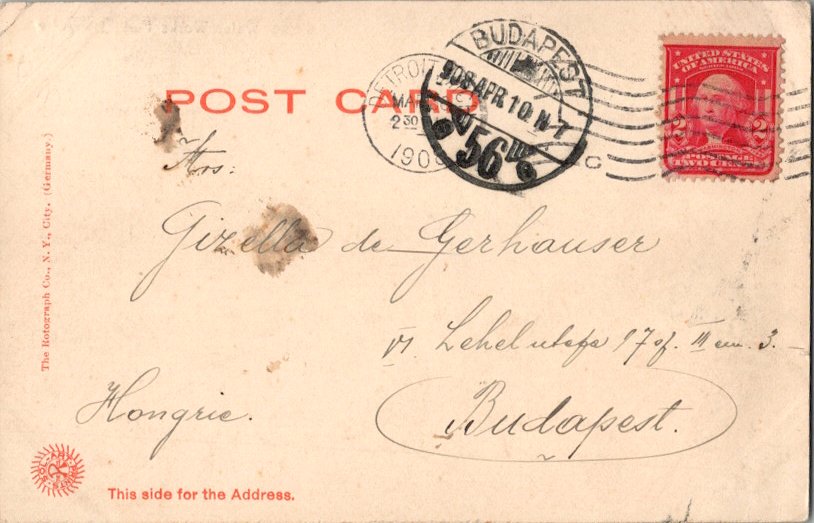 POST CARD
DETROIT
MAR
2 30
190
BUDAPEST
908 APR 10 N 7
56
UNITED STATES
OF AMERICA
2 2
POSTAGE
TWO CENTS
C
Mrs:
Gizella de Gerhauser
VI Lehel utcza 17 sz. III em. 3.
Hongrie.
Budapest.
The Rotograph Co., N. Y., City. (Germany.)
This side for the Address.